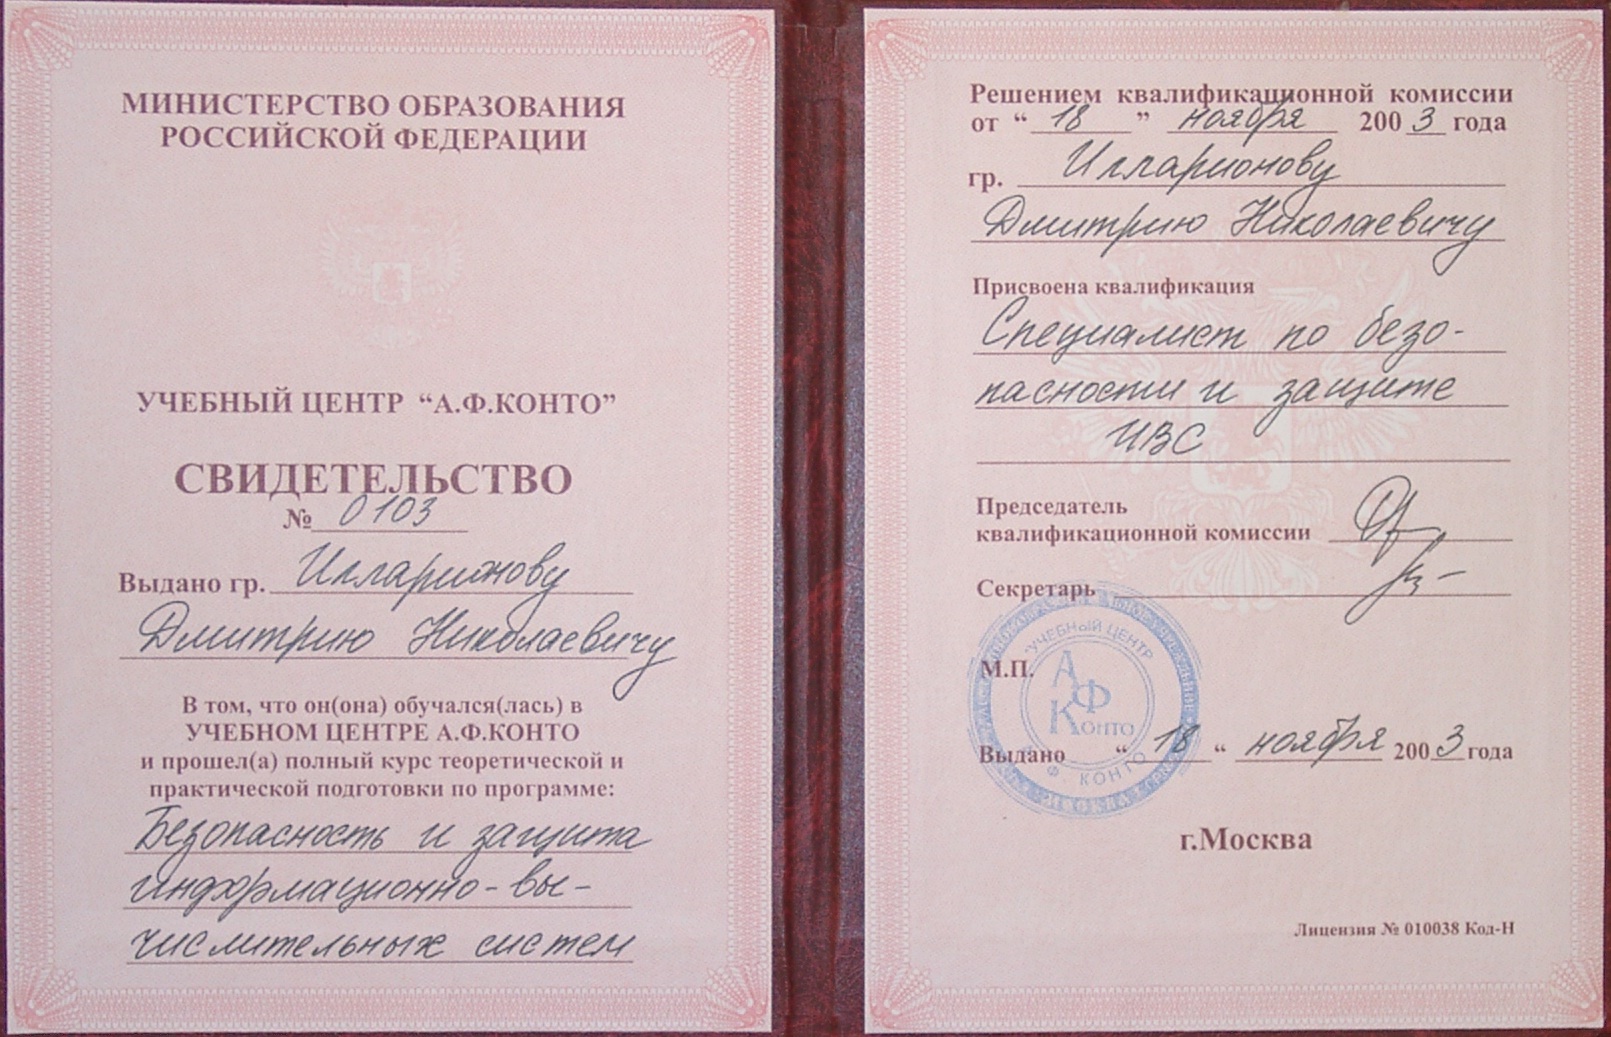 МИНИСТЕРСТВО ОБРАЗОВАНИЯ
РОССИЙСКОЙ ФЕДЕРАЦИИ
УЧЕБНЫЙ ЦЕНТР “А.Ф.КОНТО”
СВИДЕТЕЛЬСТВО
№ 0103
Выдано гр. Илларионову
Дмитрию Николаевичу
В том, что он(она) обучался(лась) в
УЧЕБНОМ ЦЕНТРЕ А.Ф.КОНТО
и прошел(а) полный курс теоретической и
практической подготовки по программе:
Безопасность и защита
информационно-вы-
числительных систем
Решением квалификационной комиссии
от “ 18 ” ноября 2003 года
гр. Илларионову
Дмитрию Николаевичу
Присвоена квалификация
Специалист по безо-
пасности и защите
ИВС
Председатель
квалификационной комиссии
Секретарь
"УЧЕБНЫЙ ЦЕНТР
М.П.
А
Ф
Конто
Выдано “ 18 “ ноября 2003 года
Ф. КОНТО
МОСКВА
г.Москва
Лицензия № 010038 Код-Н